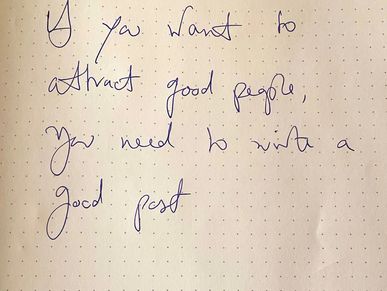 If you want to
attract good people,
You need to write a
good post